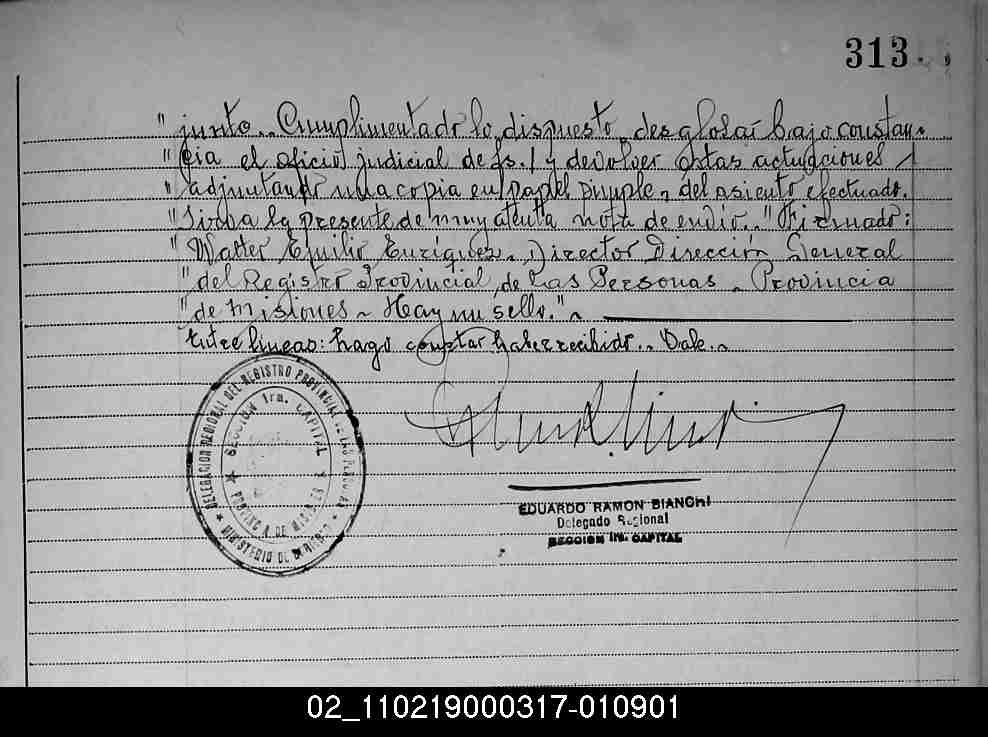 313.
" junto.. Cumplimentado lo dispuesto, desglosar bajo constan-
" cia el oficio judicial de fs. 1 y devolver estas actuaciones
" adjuntando una copia en papel simple, del asiento efectuado.
" Sirva la presente de muy atenta nota de envio.." Firmado:
" Walter Emilio Enriquez. Director Dirección General
" del Registro Provincial, de las Personas. Provincia
" de Misiones - Hay un sello." -
Entre lineas: hago constar haber recibido.. Vale.-
DELEGACION REGIONAL DEL REGISTRO PROVINCIAL DE LAS PERSONAS
SECCION 1ra. CAPITAL
PROVINCIA DE MISIONES
MINISTERIO DE GOBIERNO
EDUARDO RAMON BIANCHI
Delegado Regional
SECCION 1ra. CAPITAL
02_110219000317-010901